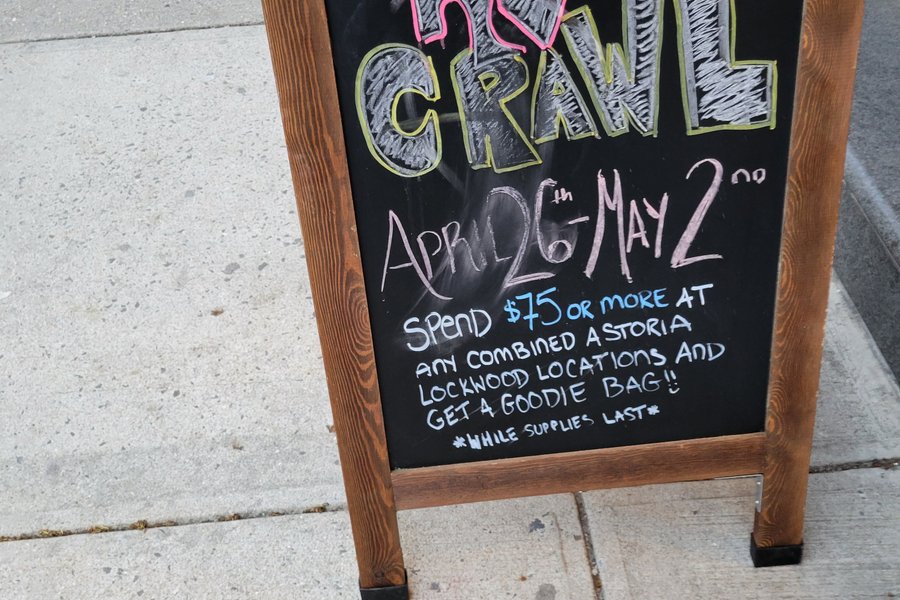 CRAWL
APRIL 26th - MAY 2nd
SPEND $75 OR MORE AT
ANY COMBINED ASTORIA
LOCKWOOD LOCATIONS AND
GET A GOODIE BAG!!
*WHILE SUPPLIES LAST*